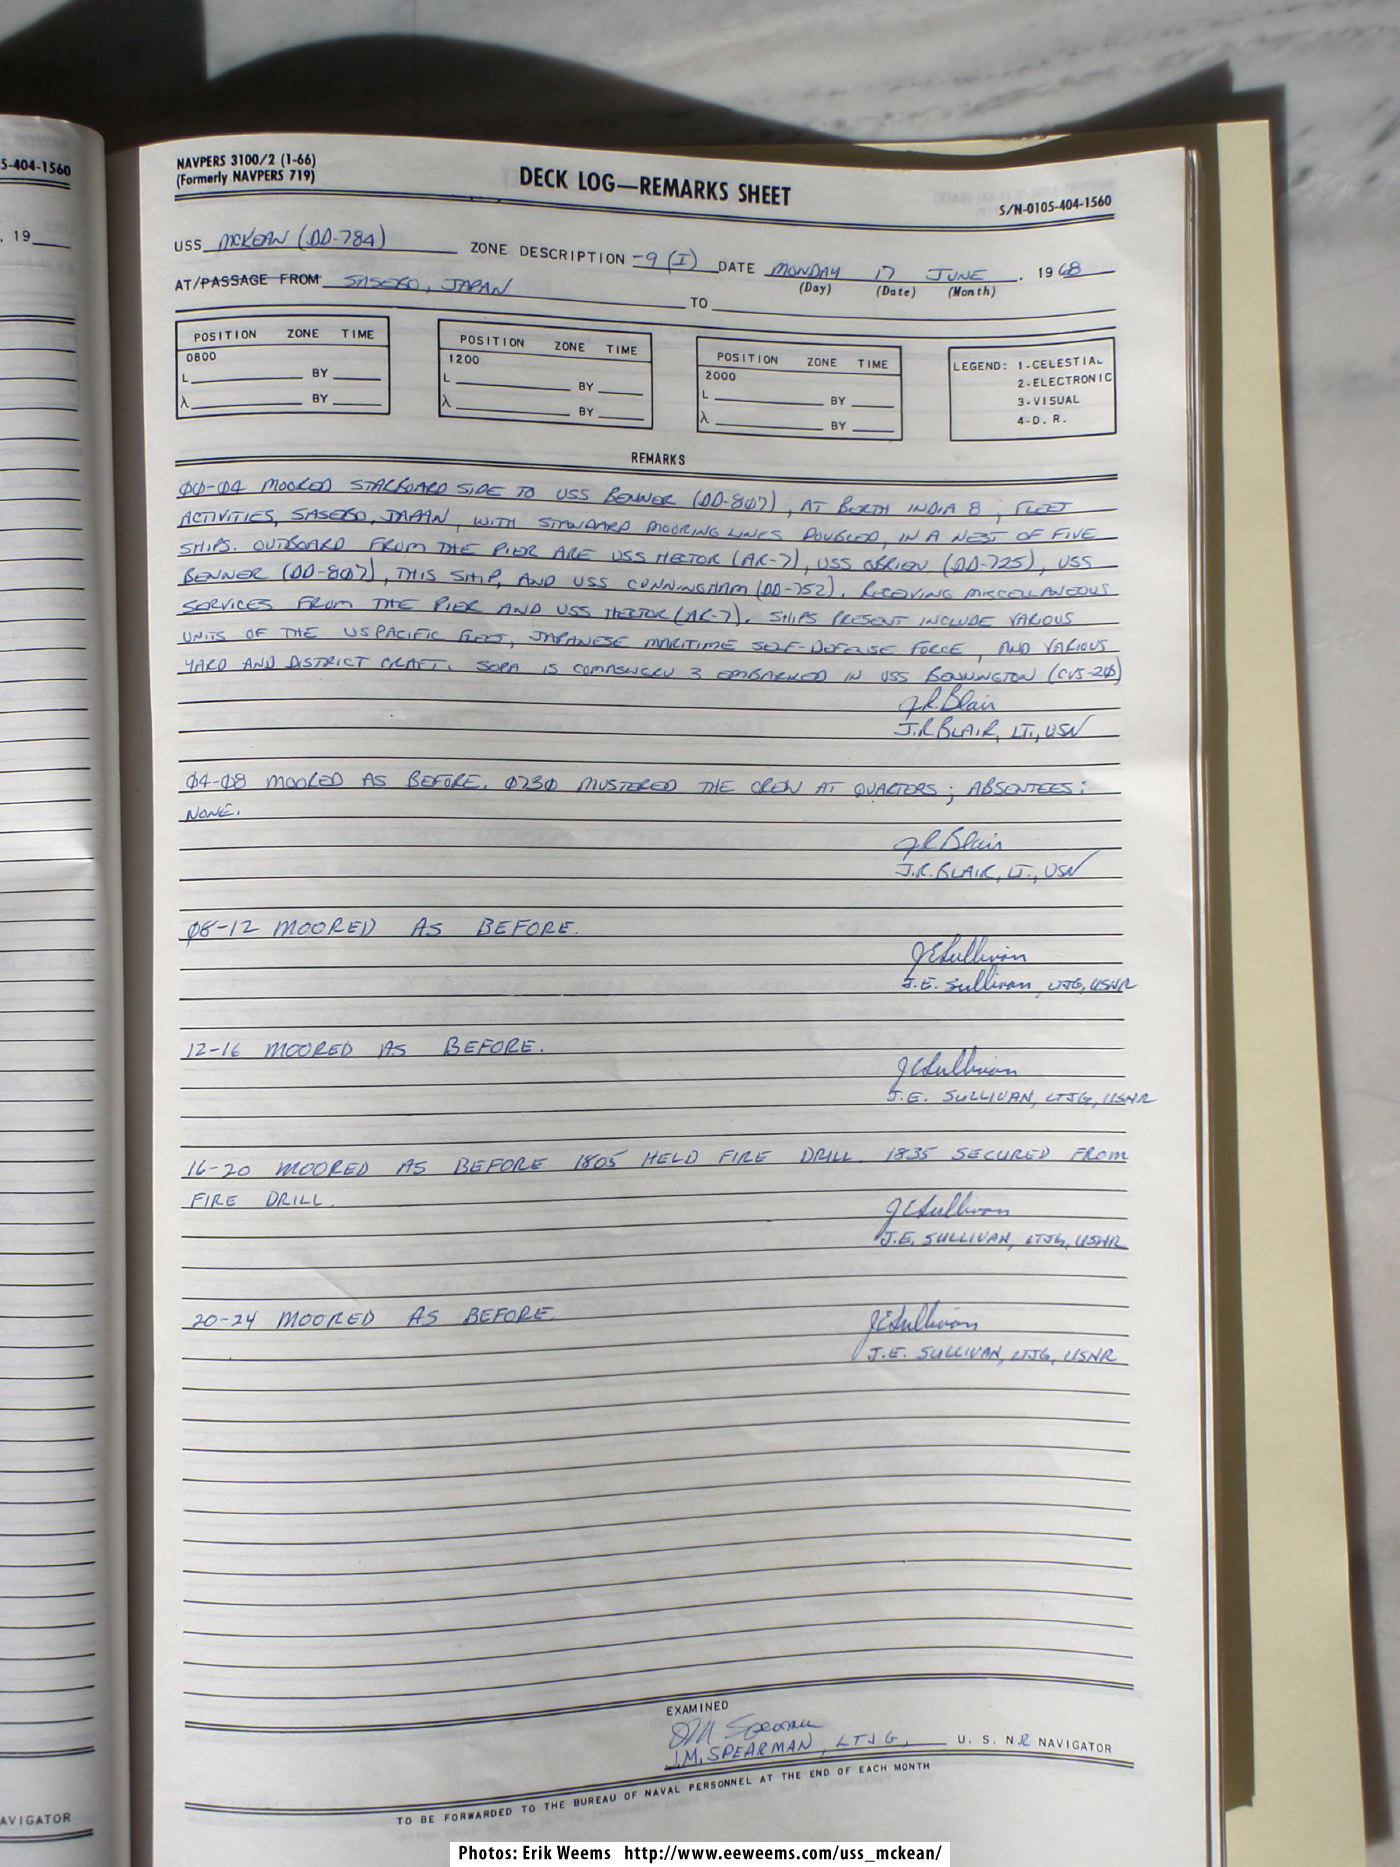 5-404-1560
. 19
AVIGATOR
NAVPERS 3100/2 (1-66)
(Formerly NAVPERS 719)
DECK LOG—REMARKS SHEET
S/N-0105-404-1560
USS MCKEAN (DD-784) ZONE DESCRIPTION -9 (I) DATE MONDAY 17 JUNE . 1968
(Day) (Date) (Month)
AT/PASSAGE FROM SASEBO, JAPAN TO
POSITION ZONE TIME
0800
L BY
λ BY
POSITION ZONE TIME
1200
L BY
λ BY
POSITION ZONE TIME
2000
L BY
λ BY
LEGEND: 1-CELESTIAL
2-ELECTRONIC
3-VISUAL
4-D. R.
REMARKS
00-04 MOORED STARBOARD SIDE TO USS BENNER (DD-807), AT BERTH INDIA 8, FLEET
ACTIVITIES, SASEBO, JAPAN, WITH STANDARD MOORING LINES DOUBLED, IN A NEST OF FIVE
SHIPS. OUTBOARD FROM THE PIER ARE USS HECTOR (AR-7), USS OBRIEN (DD-725), USS
BENNER (DD-807), THIS SHIP, AND USS CUNNINGHAM (DD-752). RECEIVING MISCELLANEOUS
SERVICES FROM THE PIER AND USS HECTOR (AR-7). SHIPS PRESENT INCLUDE VARIOUS
UNITS OF THE US PACIFIC FLEET, JAPANESE MARITIME SELF-DEFENSE FORCE, AND VARIOUS
YARD AND DISTRICT CRAFT. SOPA IS COMASWGRU 3 EMBARKED IN USS BENNINGTON (CVS-20)
J.R. Blair
J.R. BLAIR, LT., USN
04-08 MOORED AS BEFORE. 0730 MUSTERED THE CREW AT QUARTERS; ABSENTEES:
NONE.
J.R. Blair
J.R. BLAIR, LT., USN
08-12 MOORED AS BEFORE.
J E Sullivan
J.E. Sullivan, LTJG, USNR
12-16 MOORED AS BEFORE.
J E Sullivan
J.E. SULLIVAN, LTJG, USNR
16-20 MOORED AS BEFORE 1805 HELD FIRE DRILL. 1835 SECURED FROM
FIRE DRILL.
J E Sullivan
J.E. SULLIVAN, LTJG, USNR
20-24 MOORED AS BEFORE.
J E Sullivan
J.E. SULLIVAN, LTJG, USNR
EXAMINED
J M Spearman
J.M. SPEARMAN, LTJG, U. S. N.R NAVIGATOR
TO BE FORWARDED TO THE BUREAU OF NAVAL PERSONNEL AT THE END OF EACH MONTH
Photos: Erik Weems http://www.eeweems.com/uss_mckean/